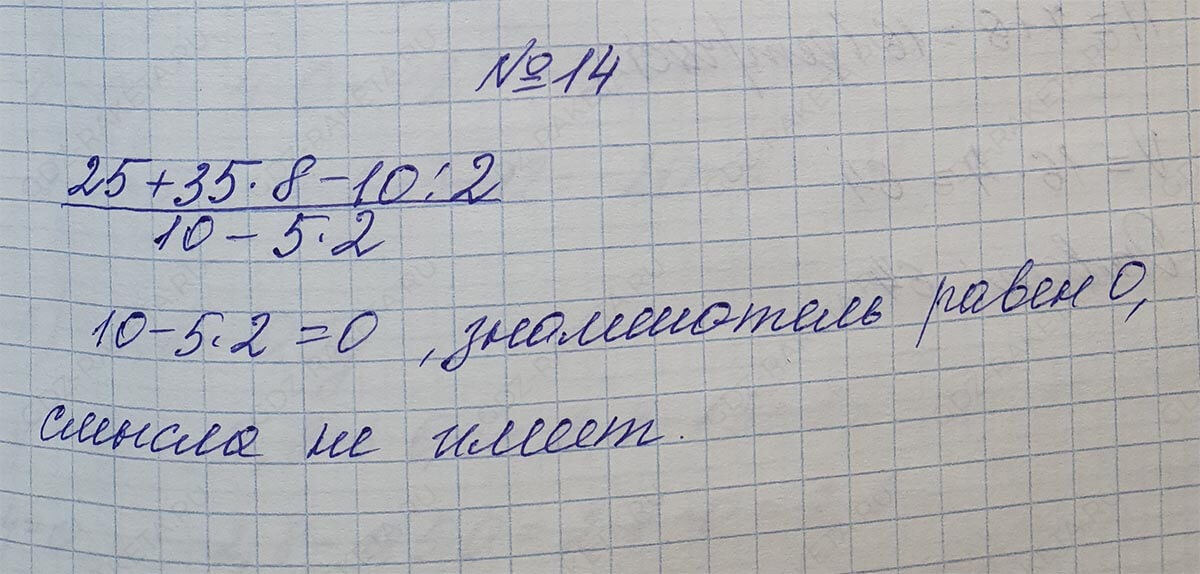 №14
25+35·8-10:2
10-5·2
10-5·2=0, знаменатель равен 0,
смысла не имеет.